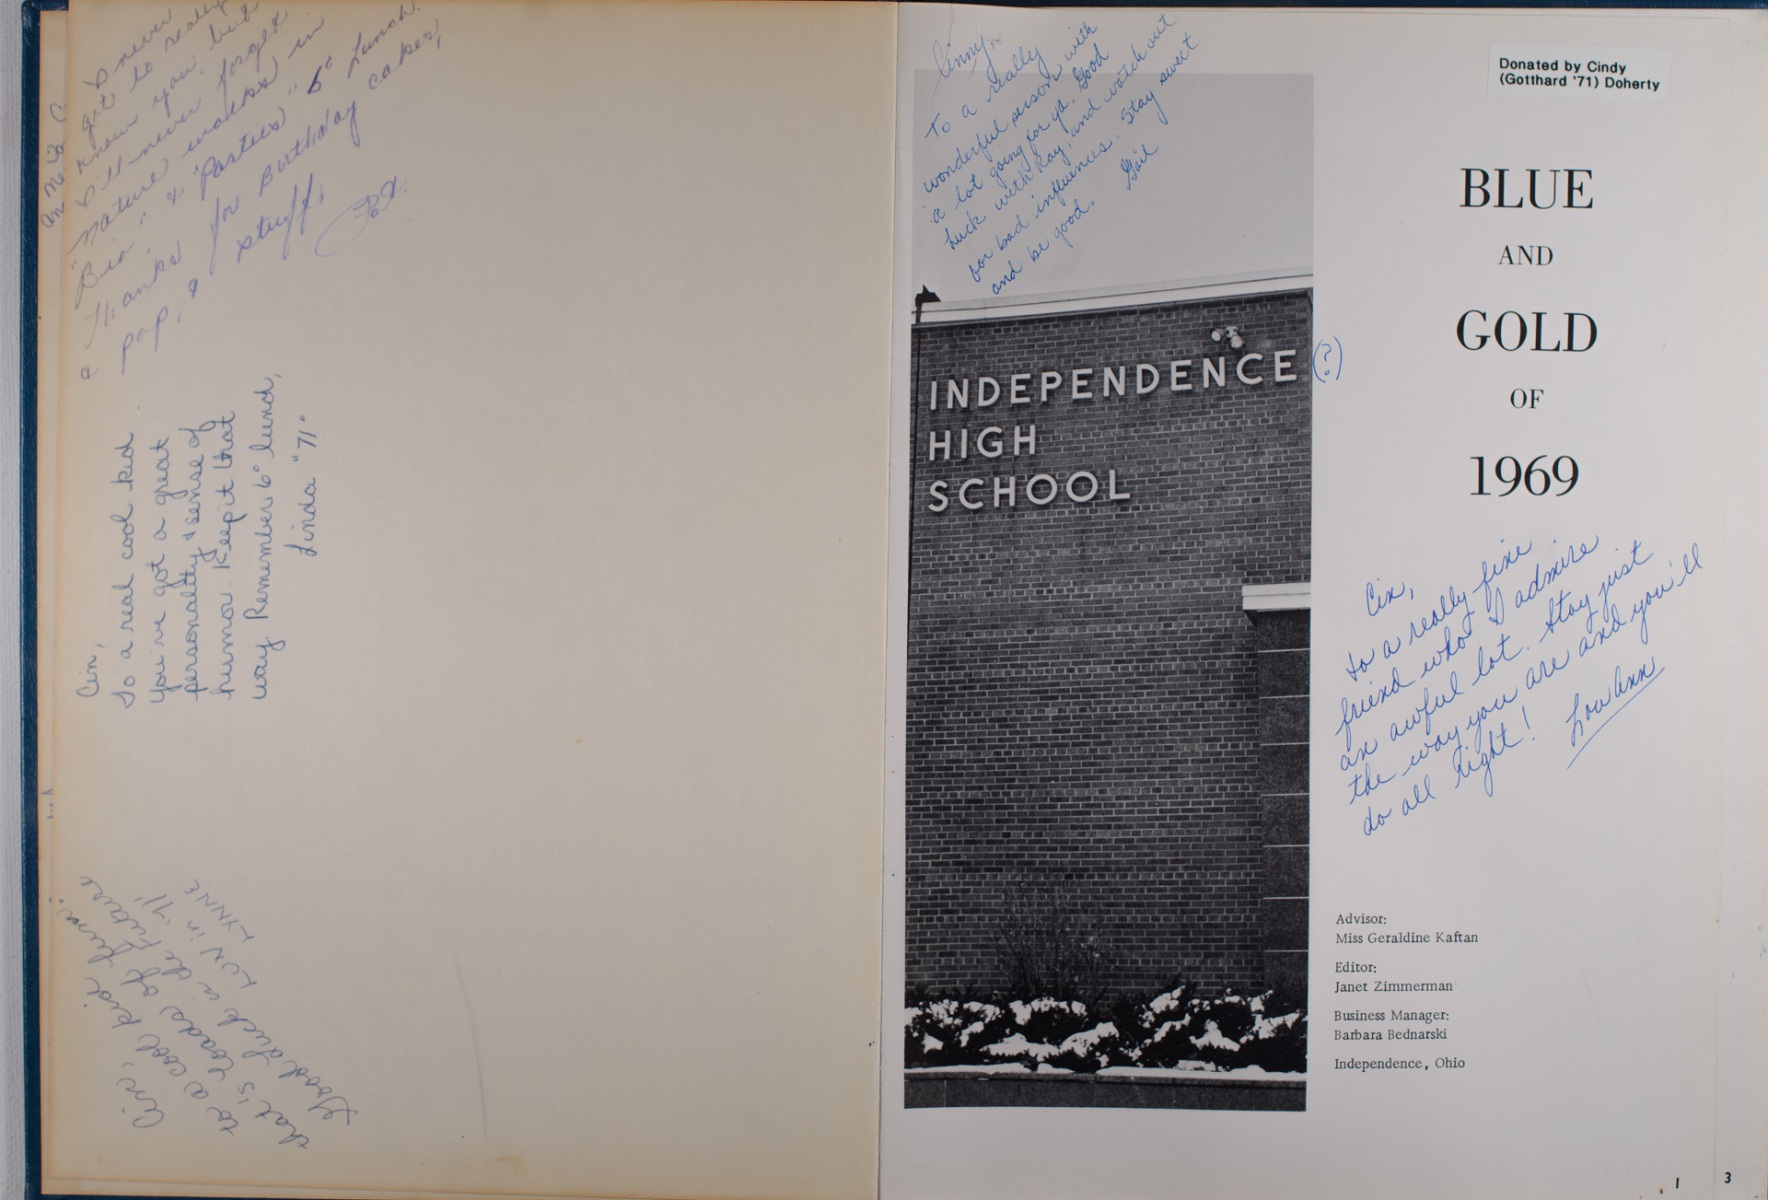 I never
get to really
know you, but
I'll never forget
"Nature walks in
Bio" & "Parties" 6° Lunch.
Thanks for Birthday cakes,
pop, & stuff,
Pat
Cin,
To a real cool kid
You've got a great
personality & sense of
humor. Keep it that
way Remember 6° lunch,
Linda "71"
Cin,
to a cool kid
that's loads of fun.
Good luck in the future
LUV in '71'
LYNNE
Cinny
To a really
wonderful person with
a lot going for ya. Good
luck with Ray, and watch out
for bad influences. Stay sweet
and be good.
Gail
Donated by Cindy
(Gotthard '71) Doherty
INDEPENDENCE (?)
HIGH
SCHOOL
BLUE
AND
GOLD
OF
1969
Cin,
to a really fine
friend who I admire
an awful lot. Stay just
the way you are and you'll
do all right!
Lou Ann
Advisor:
Miss Geraldine Kaftan
Editor:
Janet Zimmerman
Business Manager:
Barbara Bednarski
Independence, Ohio
1
3